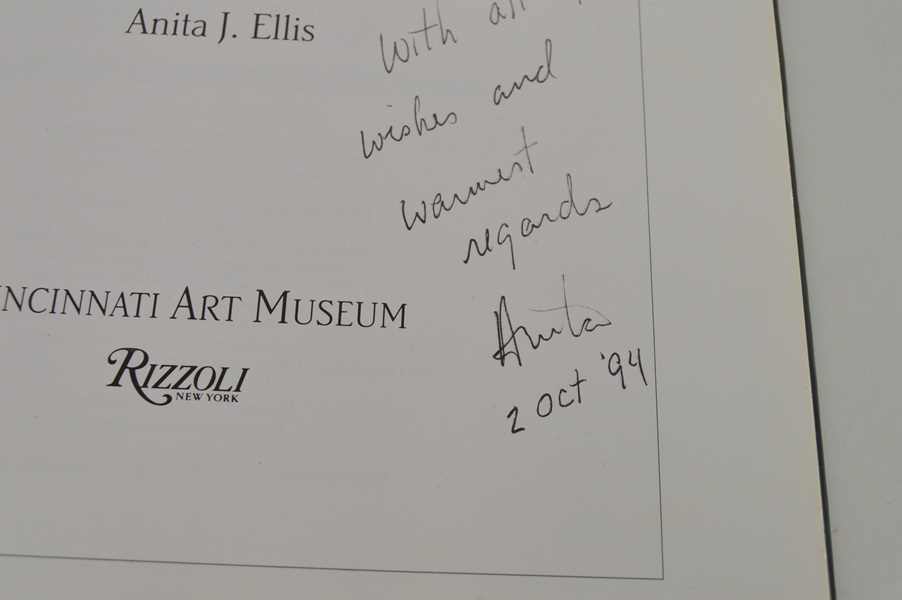 Anita J. Ellis
with all
wishes and
warmest
regards
NCINNATI ART MUSEUM
RIZZOLI
NEW YORK
Anita
2 Oct '94